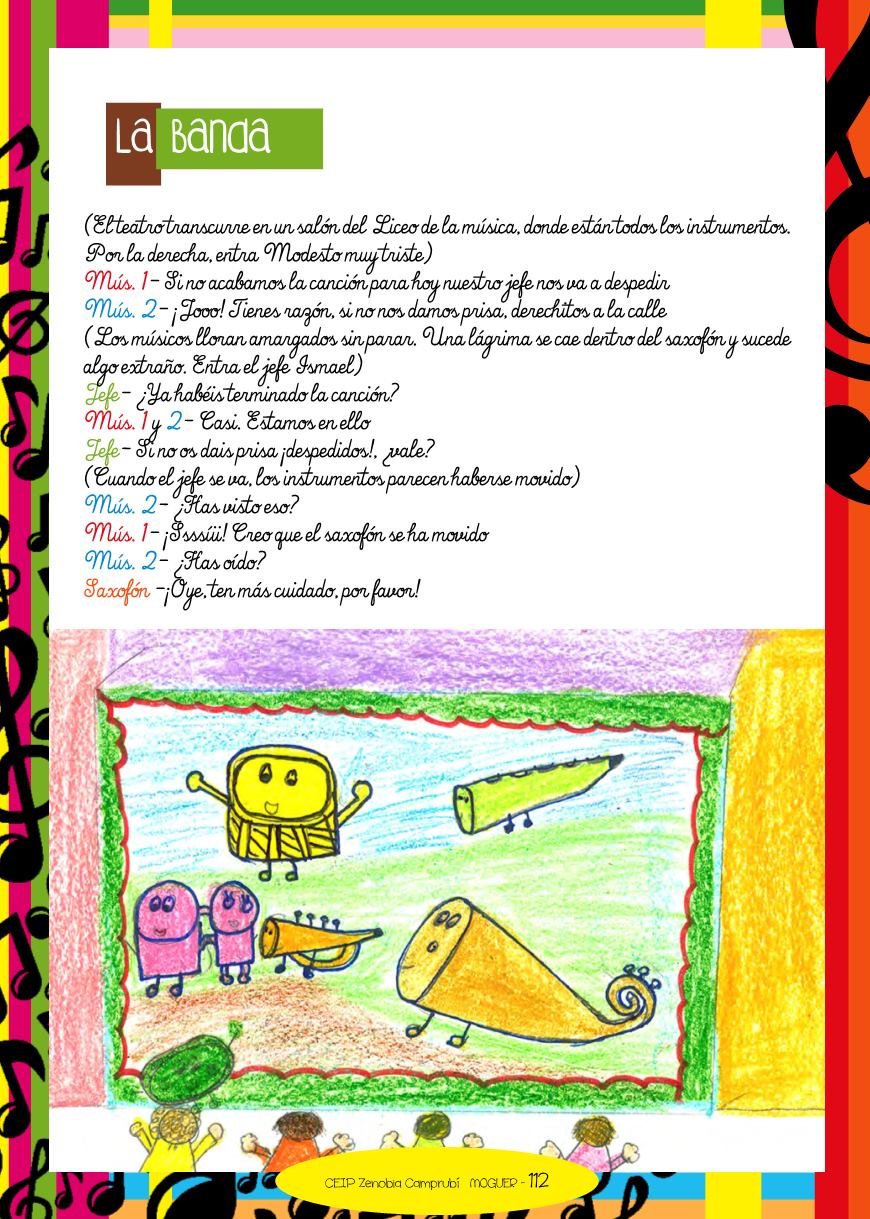 La Banda
(El teatro transcurre en un salón del Liceo de la música, donde están todos los instrumentos.
Por la derecha, entra Modesto muy triste)
Mús. 1 – Si no acabamos la canción para hoy nuestro jefe nos va a despedir
Mús. 2 – ¡Jooo! Tienes razón, si no nos damos prisa, derechitos a la calle
( Los músicos lloran amargados sin parar. Una lágrima se cae dentro del saxofón y sucede
algo extraño. Entra el jefe Ismael)
Jefe – ¿Ya habéis terminado la canción?
Mús. 1 y 2 – Casi. Estamos en ello
Jefe – Si no os dais prisa ¡despedidos!, ¿vale?
(Cuando el jefe se va, los instrumentos parecen haberse movido)
Mús. 2 – ¿Has visto eso?
Mús. 1 – ¡Sssíii! Creo que el saxofón se ha movido
Mús. 2 – ¿Has oído?
Saxofón – ¡Oye, ten más cuidado, por favor!
CEIP Zenobia Camprubí MOGUER - 112